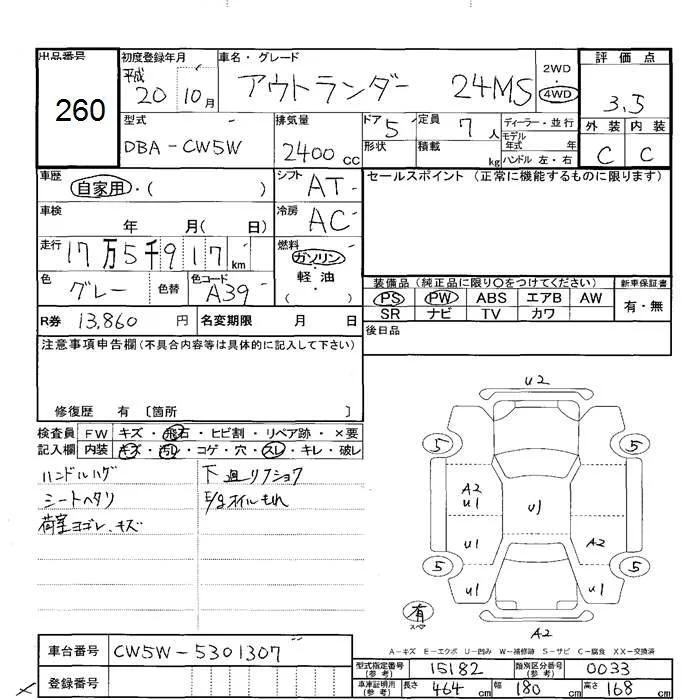 出品番号 初度登録年月 車名・グレード 2WD 評価点
260 平成 20 10月 アウトランダー 24MS 4WD 3.5
型式 排気量 ドア 5 定員 7人 ディーラー・並行 外装 内装
DBA-CW5W 2400cc 形状 積載 kg モデル年式 年 C C
ハンドル 左・右
車歴 自家用・( ) シフト AT セールスポイント (正常に機能するものに限ります)
車検 年 月( 日) 冷房 AC
走行 17万5千917km 燃料 ガソリン・軽油・( )
色 グレー 色替 色コード A39
装備品 (純正品に限り○をつけてください) 新車保証書
PS PW ABS エアB AW 有・無
SR ナビ TV カワ
R券 13,860円 名変期限 月 日 後日品
注意事項申告欄(不具合内容等は具体的に記入して下さい)
修復歴 有 [箇所 ]
検査員 FW キズ・飛石・ヒビ割・リペア跡・×要
記入欄 内装 キズ・汚レ・コゲ・穴・スレ・キレ・破レ
ハンドルハゲ 下廻リフショウ
シートヘタリ E/gオイルもれ
荷室ヨゴレ、キズ
U2
5 5
A2
U1 U1
U1 A2
5 5
U1 U1
有
スペア
A2
A-キズ E-エクボ U-凹み W-補修跡 S-サビ C-腐食 XX-交換済
車台番号 CW5W-5301307
登録番号
型式指定番号(参考) 15182 類別区分番号(参考) 0033
車庫証明用(参考) 長さ 464cm 幅 180cm 高さ 168cm